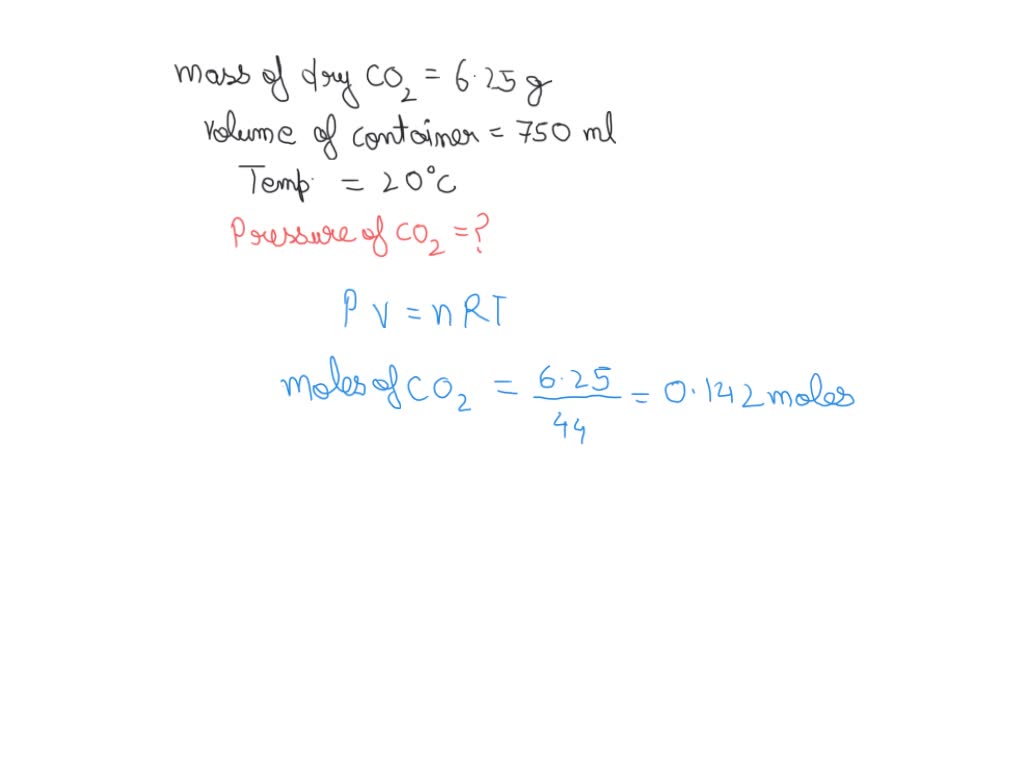 mass of dry CO₂ = 6.25 g
Volume of container = 750 ml
Temp. = 20°C
Pressure of CO₂ = ?
PV = nRT
moles of CO₂ = 6.25/44 = 0.142 moles